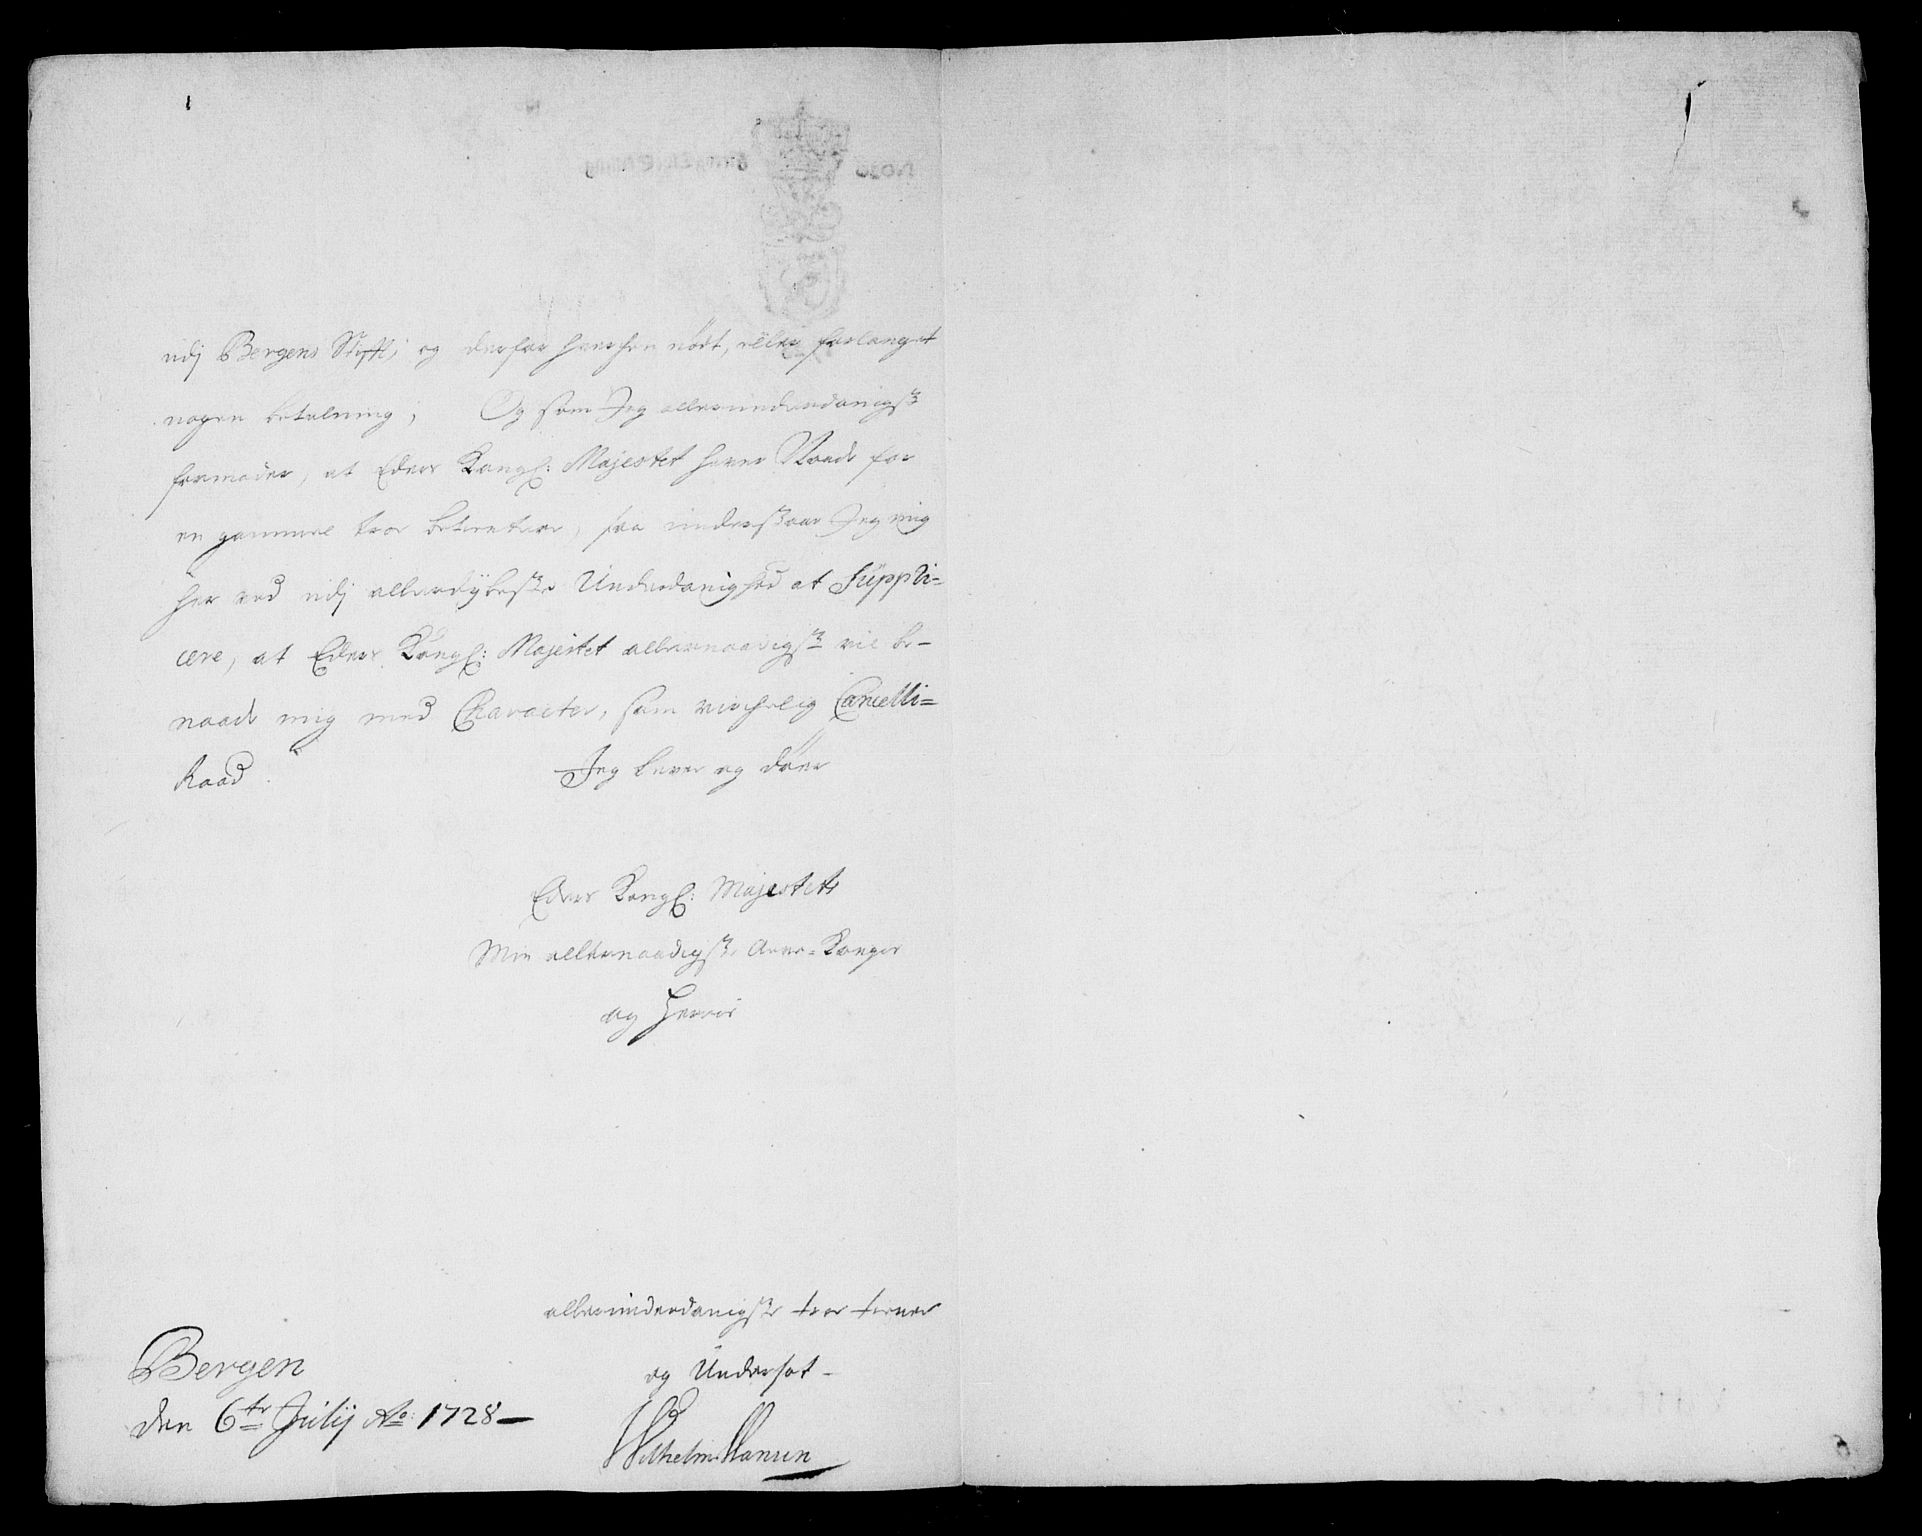 udj Bergens Stifft, og derfor hverchen nødt, eller forlanget
nogen betalning; Og som Jeg allerunderdanigst
formoder, at Eders Kongl: Majestet haver Naade for
en gammel troe betientere, saa understaar Jeg mig
her ved udj allerdybeste Underdanighed at Suppli=
cere, at Eders Kongl: Majestet allernaadigst vil be-
naade mig med Character, som virchelig Cancelli=
Raad.
Jeg lever og døer
Eders Kongl: Majestets
Min allernaadigste Arve-Konges
og Herris
allerunderdanigste troe tiener
og Undersot-
Bergen
den 6te Julij Ao: 1728-
Wilhelm Hansen